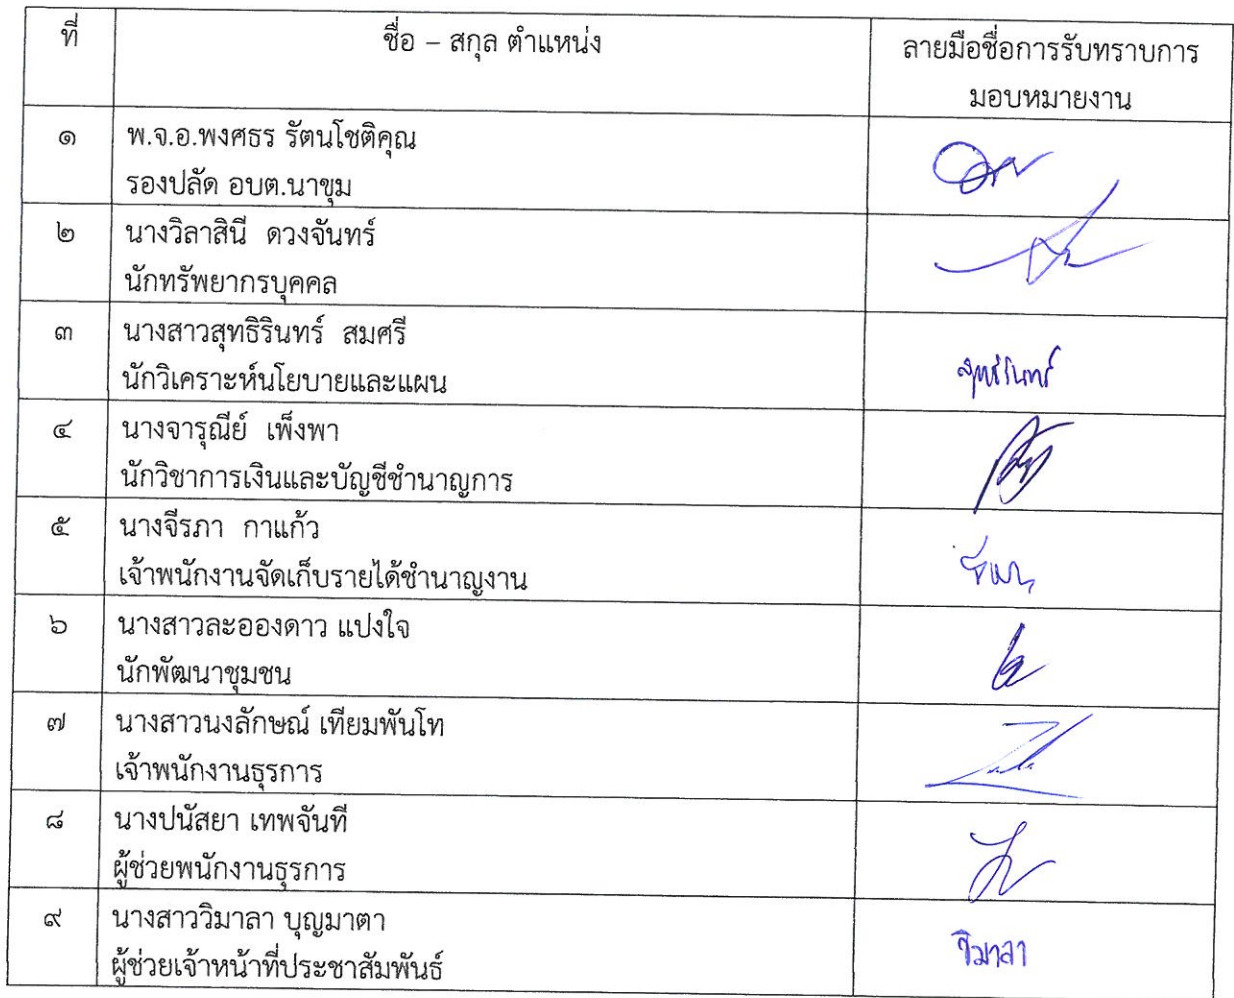 ที่ ชื่อ – สกุล ตำแหน่ง ลายมือชื่อการรับทราบการ
มอบหมายงาน
๑ พ.จ.อ.พงศธร รัตนโชติคุณ
รองปลัด อบต.นาขุม
๒ นางวิลาสินี ดวงจันทร์
นักทรัพยากรบุคคล
๓ นางสาวสุทธิรินทร์ สมศรี
นักวิเคราะห์นโยบายและแผน สุทธิรินทร์
๔ นางจารุณีย์ เพ็งพา
นักวิชาการเงินและบัญชีชำนาญการ
๕ นางจีรภา กาแก้ว
เจ้าพนักงานจัดเก็บรายได้ชำนาญงาน
๖ นางสาวละอองดาว แปงใจ
นักพัฒนาชุมชน
๗ นางสาวนงลักษณ์ เทียมพันโท
เจ้าพนักงานธุรการ
๘ นางปนัสยา เทพจันที
ผู้ช่วยพนักงานธุรการ
๙ นางสาววิมาลา บุญมาตา
ผู้ช่วยเจ้าหน้าที่ประชาสัมพันธ์ วิมาลา